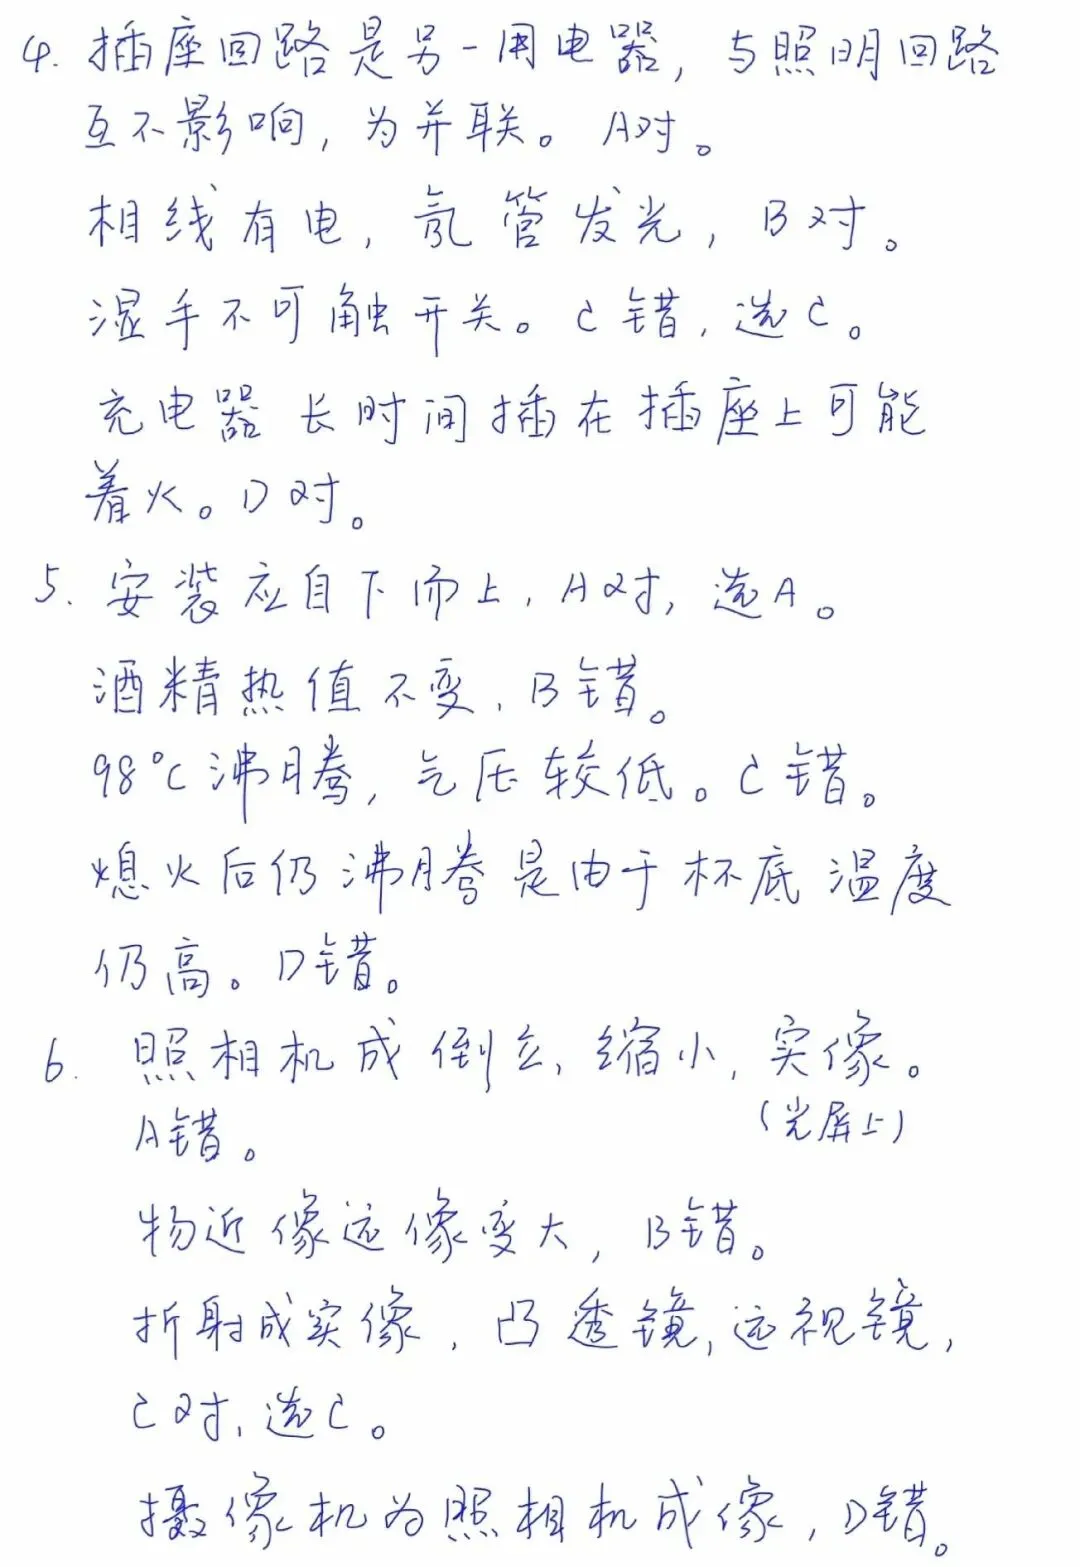 4. 插座回路是另一用电器,与照明回路
互不影响,为并联。A对。
相线有电,氖管发光,B对。
湿手不可触开关。C错,选C。
充电器长时间插在插座上可能
着火。D对。
5. 安装应自下而上,A对,选A。
酒精热值不变,B错。
98°C沸腾,气压较低。C错。
熄火后仍沸腾是由于杯底温度
仍高。D错。
6. 照相机成倒立,缩小,实像。
(光屏上)
A错。
物近像远像变大,B错。
折射成实像,凸透镜,远视镜,
C对,选C。
摄像机为照相机成像,D错。